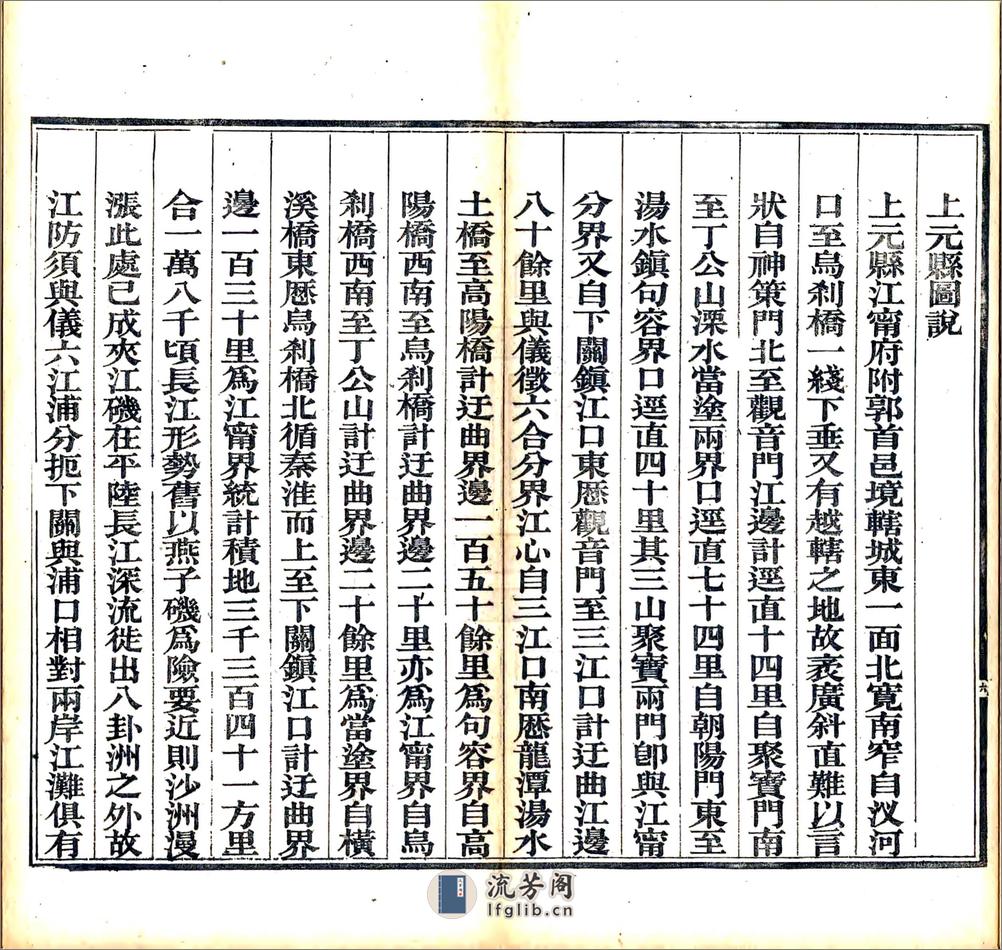 上元縣圖說
上元縣江甯府附郭首邑境轄城東一面北寬南窄自汊河
口至烏刹橋一綫下垂又有越轄之地故袤廣斜直難以言
狀自神策門北至觀音門江邊計逕直十四里自聚寶門南
至丁公山溧水當塗兩界口逕直七十四里自朝陽門東至
湯水鎭句容界口逕直四十里其三山聚寶兩門卽與江甯
分界又自下關鎭江口東歷觀音門至三江口計迂曲江邊
八十餘里與儀徵六合分界江心自三江口南歷龍潭湯水
土橋至高陽橋計迂曲界邊一百五十餘里爲句容界自高
陽橋西南至烏刹橋計迂曲界邊二十里亦爲江甯界自烏
刹橋西南至丁公山計迂曲界邊二十餘里爲當塗界自橫
溪橋東歷烏刹橋北循秦淮而上至下關鎭江口計迂曲界
邊一百三十里爲江甯界統計積地三千三百四十一方里
合一萬八千頃長江形勢舊以燕子磯爲險要近則沙洲漫
漲此處已成夾江磯在平陸長江深流徙出八卦洲之外故
江防須與儀六江浦分扼下關與浦口相對兩岸江灘俱有
六
流芳閣
lfglib.cn